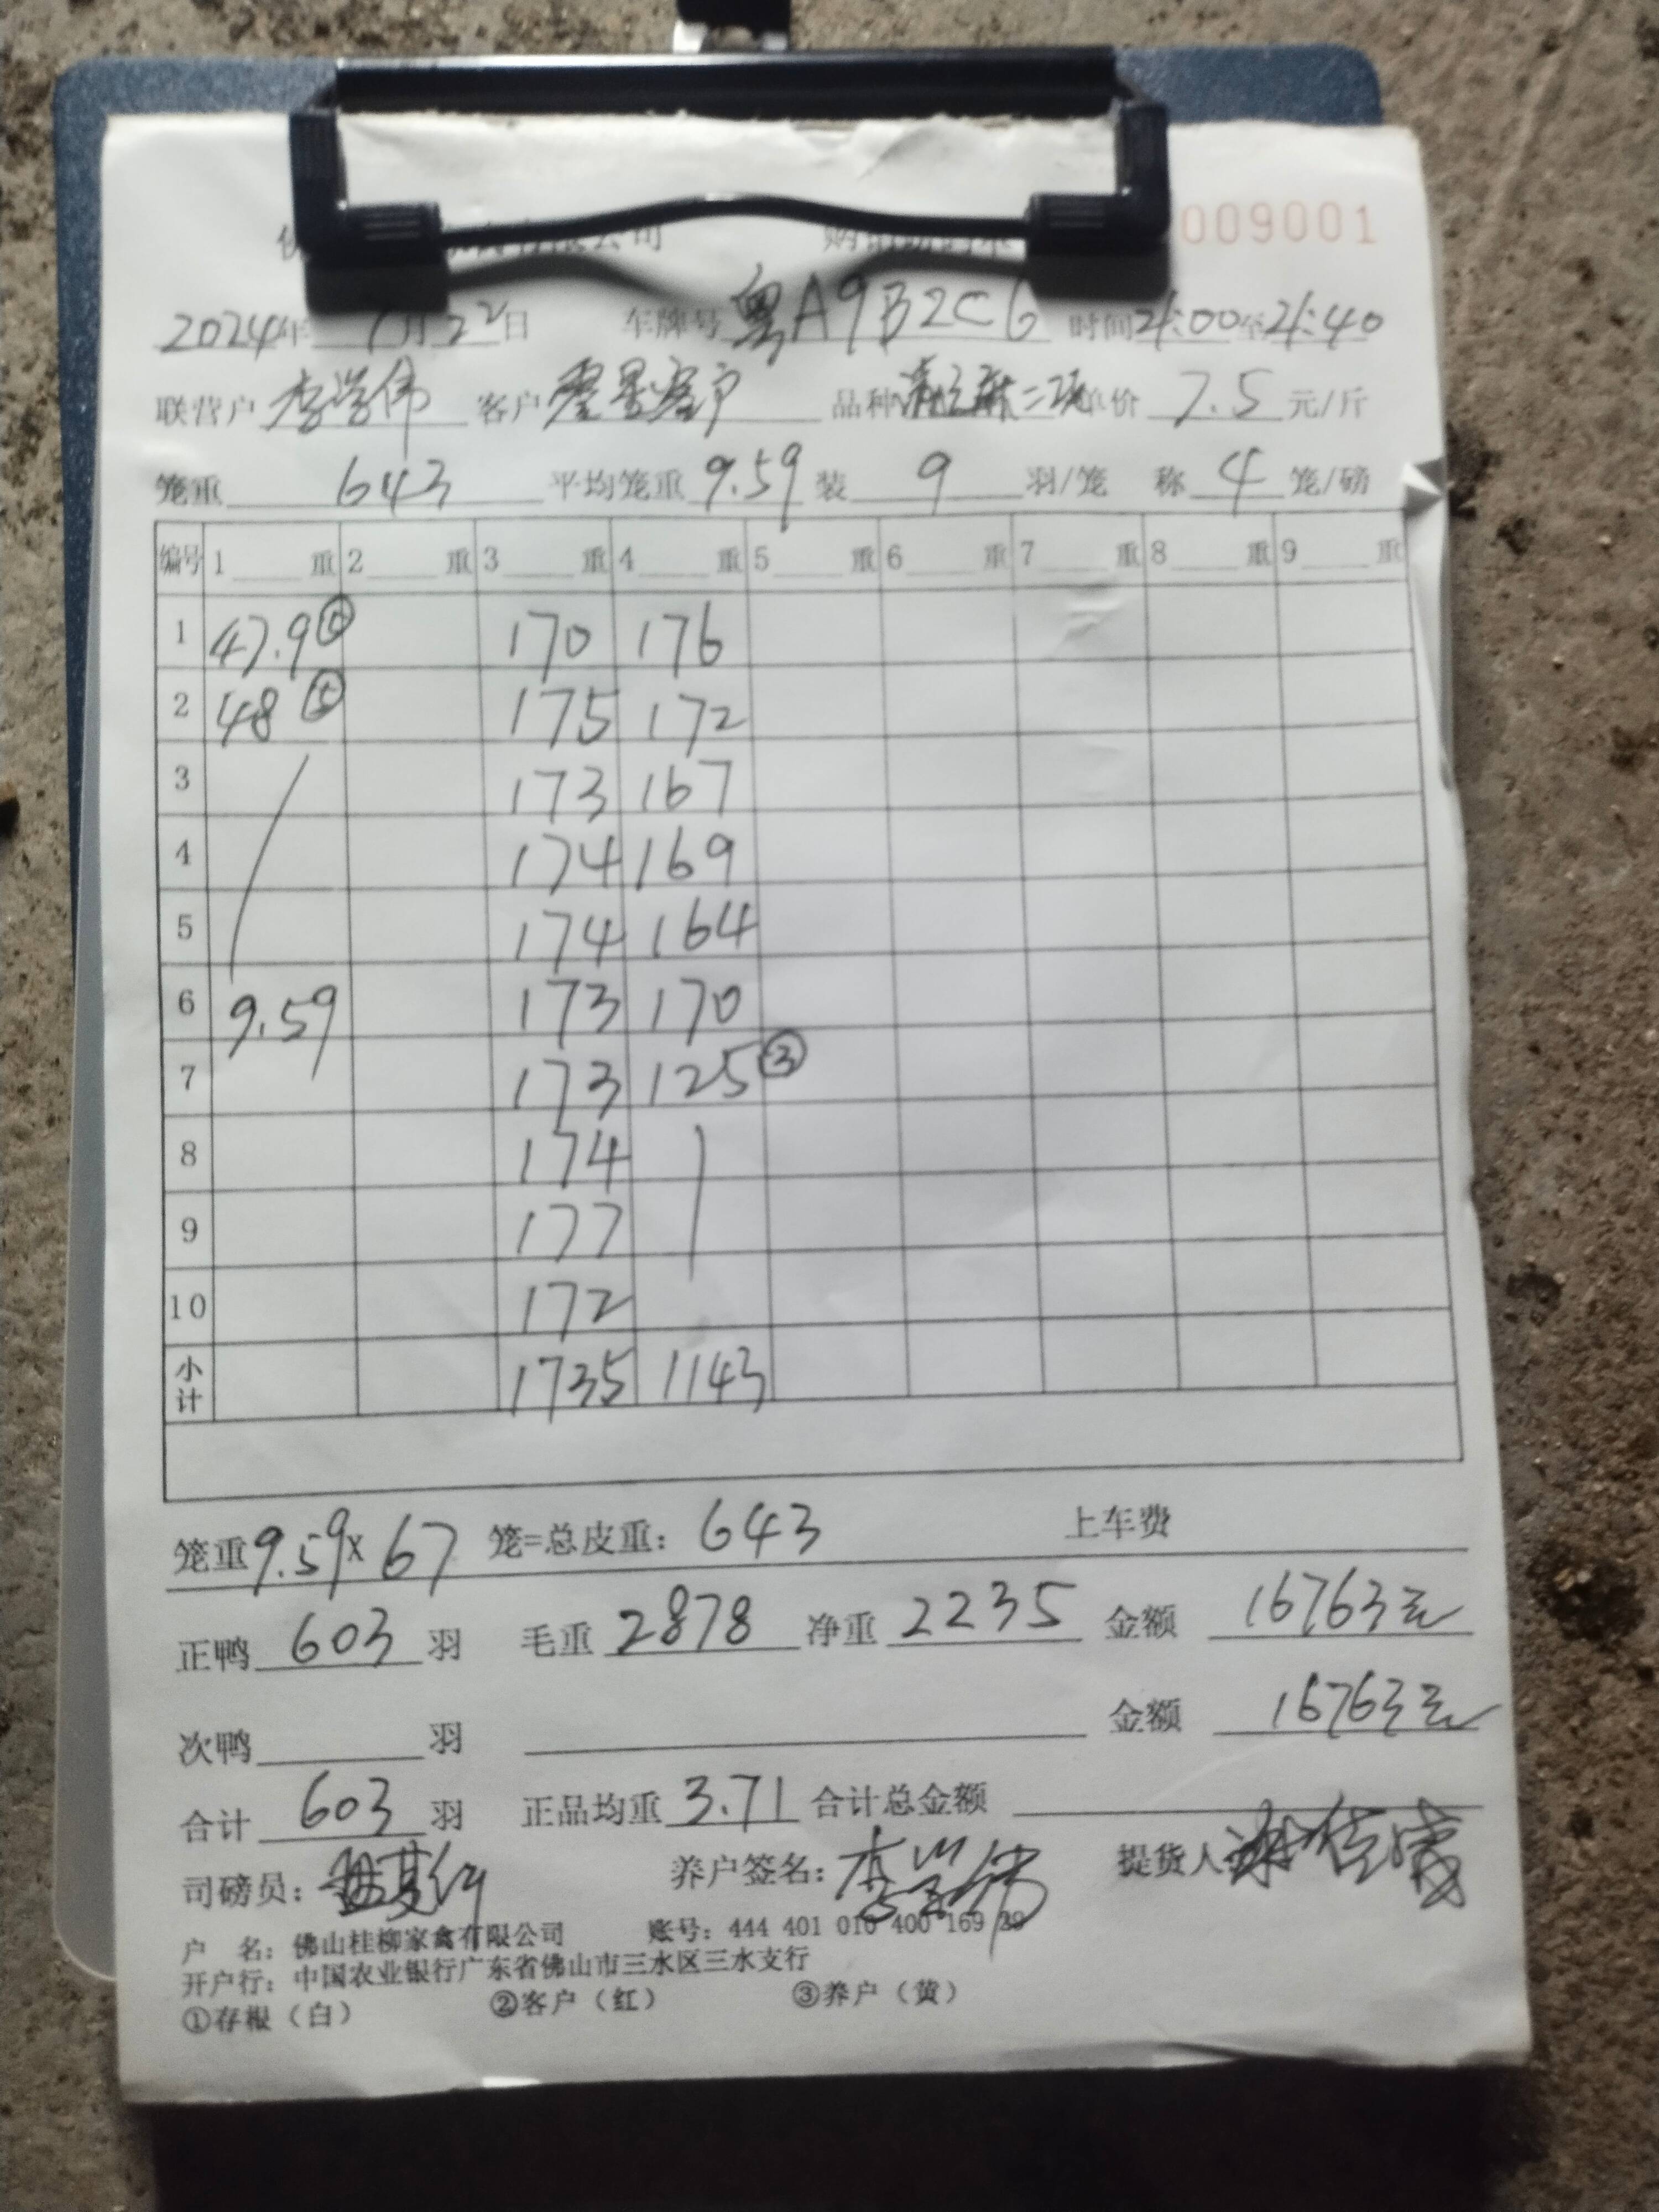 有限公司 009001
2024年 月22日 车牌号 粤A9B2C6 时间 21:00至21:40
联营户 李学伟 客户 零星客户 品种 单价 7.5 元/斤
笼重 643 平均笼重 9.59 装 9 羽/笼 称 4 笼/磅
编号 1 重 2 重 3 重 4 重 5 重 6 重 7 重 8 重 9 重
1 47.9⑤ 170 176
2 48⑤ 175 172
3 173 167
4 174 169
5 174 164
6 9.59 173 170
7 173 125③
8 174
9 177
10 172
小计 1735 1143
笼重 9.59 x 67 笼=总皮重: 643 上车费
正鸭 603 羽 毛重 2878 净重 2235 金额 16763元
次鸭 羽 金额 16763元
合计 603 羽 正品均重 3.71 合计总金额
司磅员: 养户签名: 李学伟 提货人
户 名: 佛山桂柳家禽有限公司 账号: 444 401 010 400 169 29
开户行: 中国农业银行广东省佛山市三水区三水支行
①存根（白） ②客户（红） ③养户（黄）